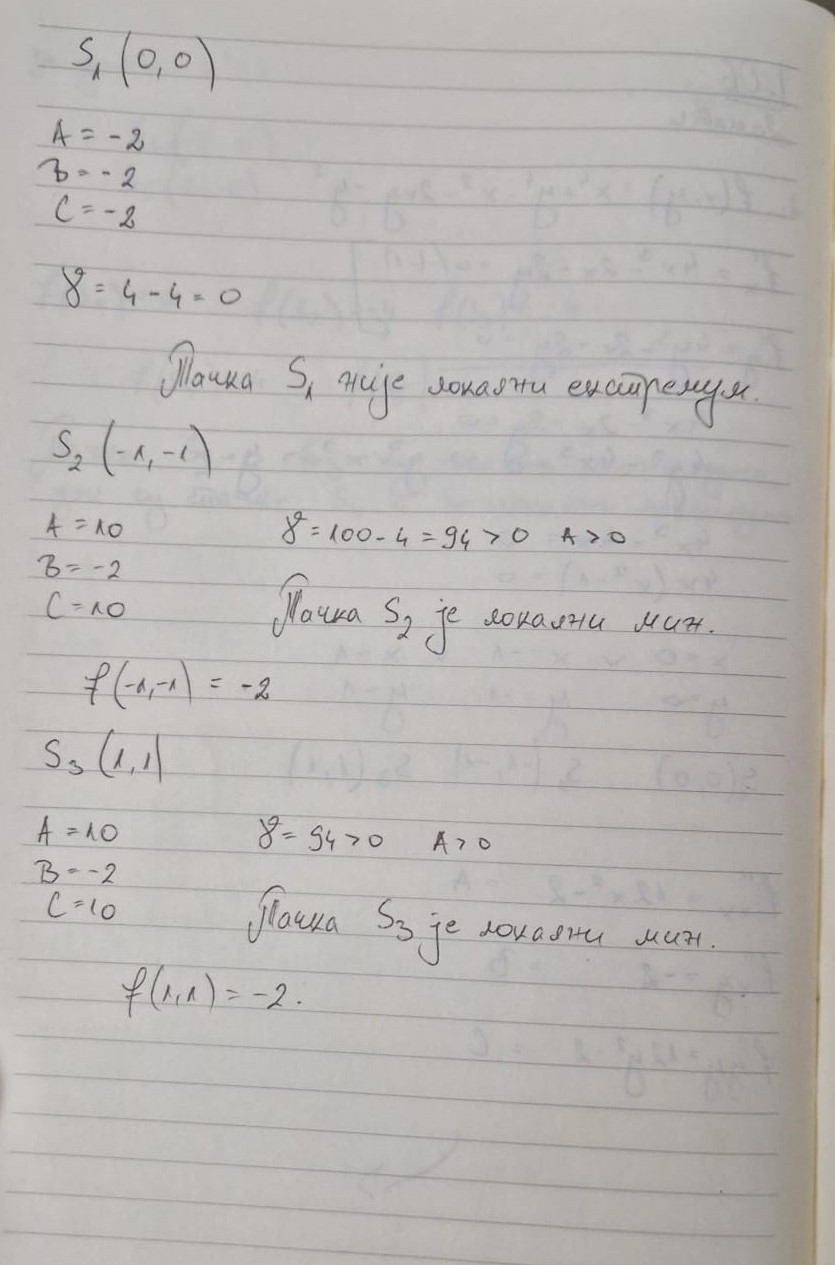 S₁ (0,0)
A = -2
B = -2
C = -2
γ = 4 - 4 = 0
Тачка S₁ није локални екстремум.
S₂ (-1,-1)
A = 10 γ = 100 - 4 = 94 > 0 A > 0
B = -2
C = 10 Тачка S₂ је локални мин.
f(-1,-1) = -2
S₃ (1,1)
A = 10 γ = 94 > 0 A > 0
B = -2
C = 10 Тачка S₃ је локални мин.
f(1,1) = -2.